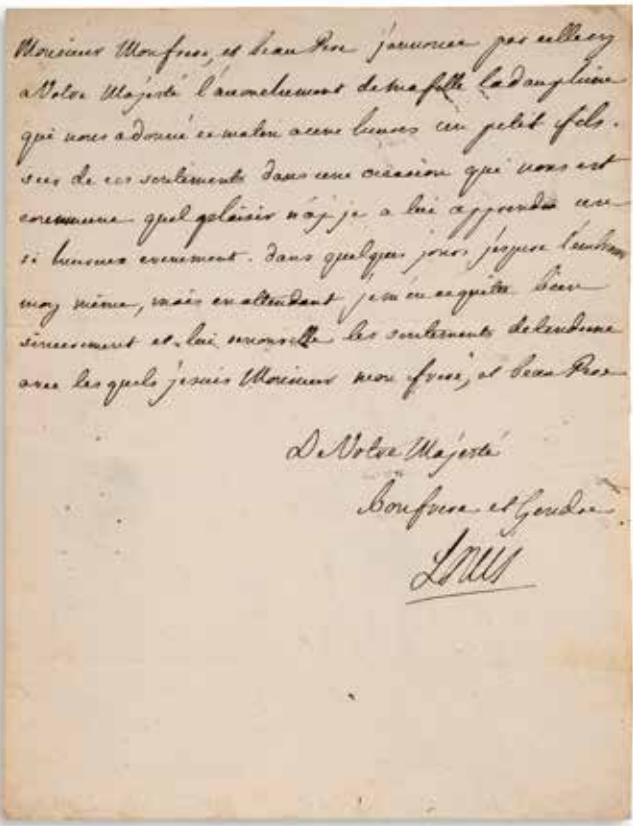 Monsieur Mon frere, et beau Pere j'annonce par celle cy
a Votre Majesté l'accouchement de ma fille la dauphine
qui nous a donné ce matin a une heures un petit fils.
sur de ces sentiments dans une occasion qui nous est
commune quel plaisir n'ay je a lui apprendre un
si heureux evenement. dans quelques jours j'espere l'embrasser
moy même, mais en attendant je m'en acquitte bien
sincerement et lui renouvelle les sentiments de tendresse
avec les quels je suis Monsieur mon frere, et beau Pere
De Votre Majesté
bon frere et Gendre
Louis